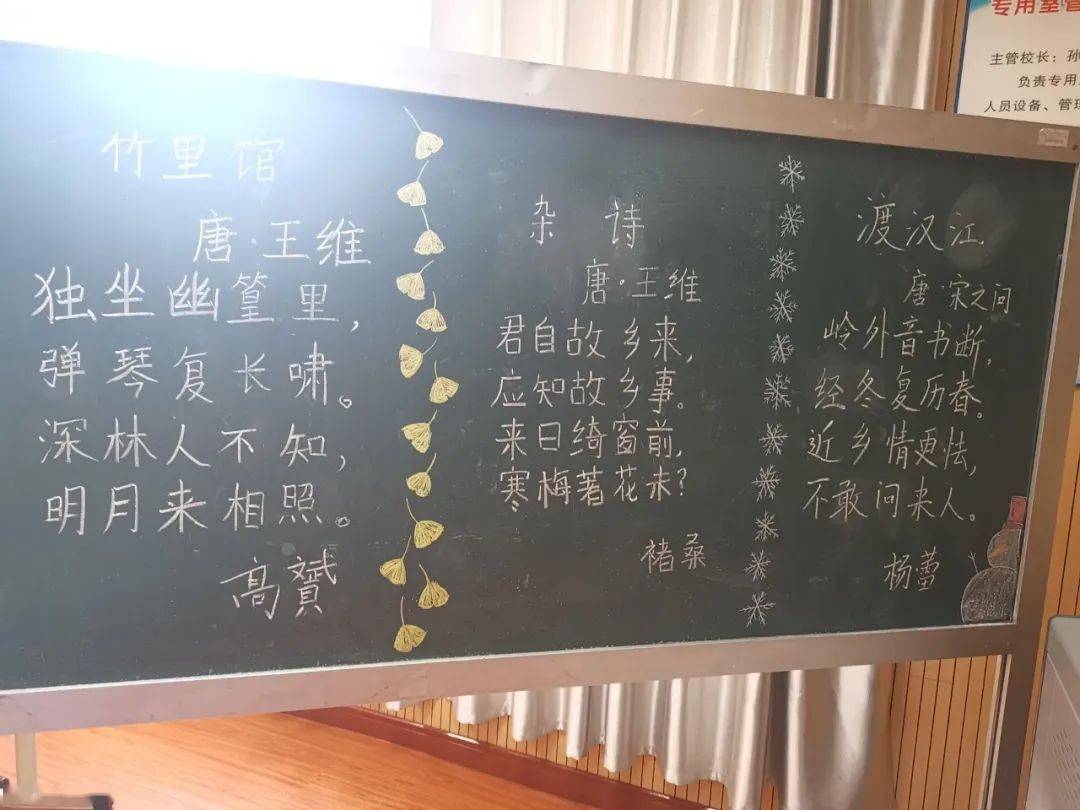 竹里馆
唐·王维
独坐幽篁里，
弹琴复长啸。
深林人不知，
明月来相照。
高赟
杂诗
唐·王维
君自故乡来，
应知故乡事。
来日绮窗前，
寒梅著花未？
褚桑
渡汉江
唐·宋之问
岭外音书断，
经冬复历春。
近乡情更怯，
不敢问来人。
杨蕾
专用室管
主管校长：孙
负责专用
人员设备、管理